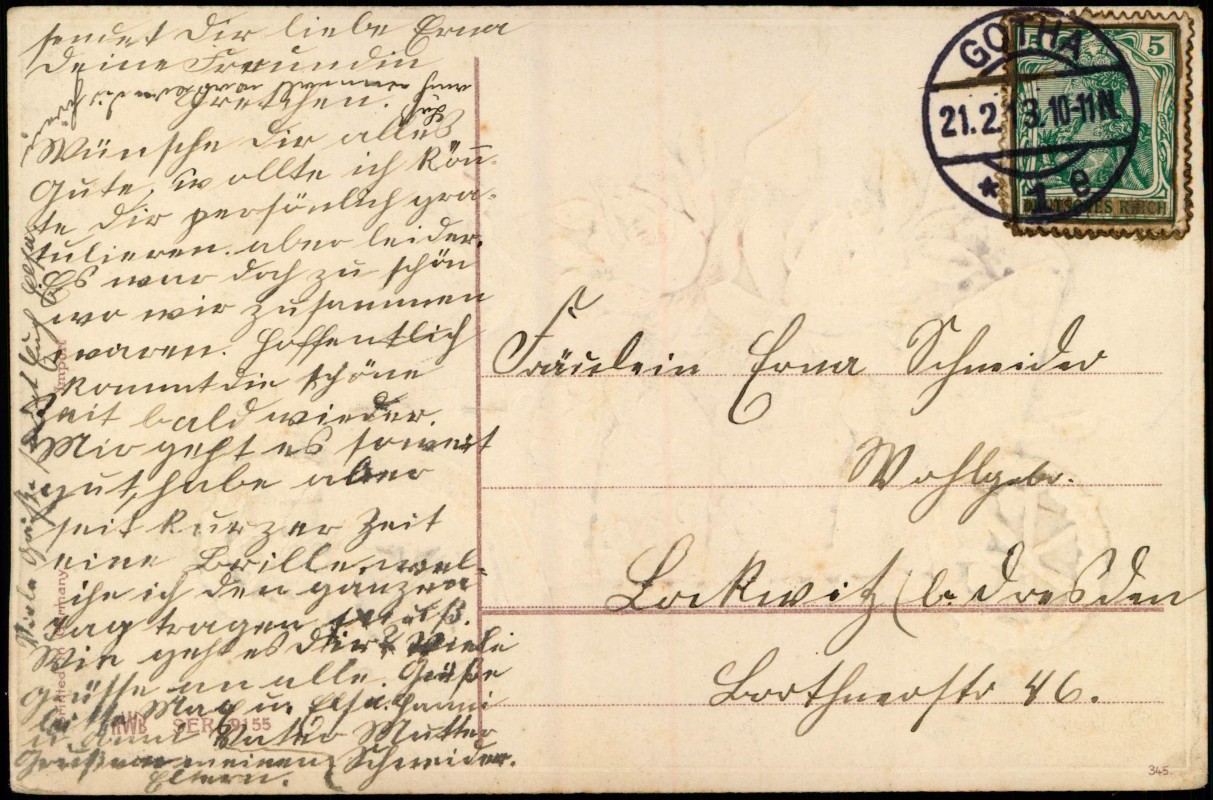 sendet Dir liebe Erna
Deine Freundin
Gretchen.
Wünsche Dir alles
Gute, wollte ich könn-
te Dir persönlich gra-
tulieren. aber leider.
Es war doch zu schön
wo wir zusammen
waren. Hoffentlich
kommt die schöne
eit bald wieder.
Mir geht es soweit
gut, habe aber
seit kurzer Zeit
eine Brille, wel-
che ich den ganzen
Tag tragen muß.
Wie geht es Dir? Viele
Grüsse an alle. Grüße
bitte Max u. Elsa.
u. Vater Mutter
Gruß von meinen Schneider.
Eltern.
Viele Grüße
Printed in Germany
Import
HWB SER 9155
GOTHA
21.2.13. 10-11 N.
* 1 e
5 5
DEUTSCHES REICH
Fräulein Erna Schneider
Wohlgebr.
Lockwitz b. Dresden
Borthnerstr 46.
345